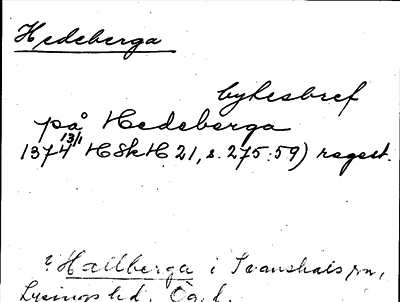 Hedeberga
bykesbref
på Hedeberga
13/1
1374 HSkH 21, s. 275:59) regest.
? Hallberga i Svanshals sn,
Lysings hd, Ög. l.